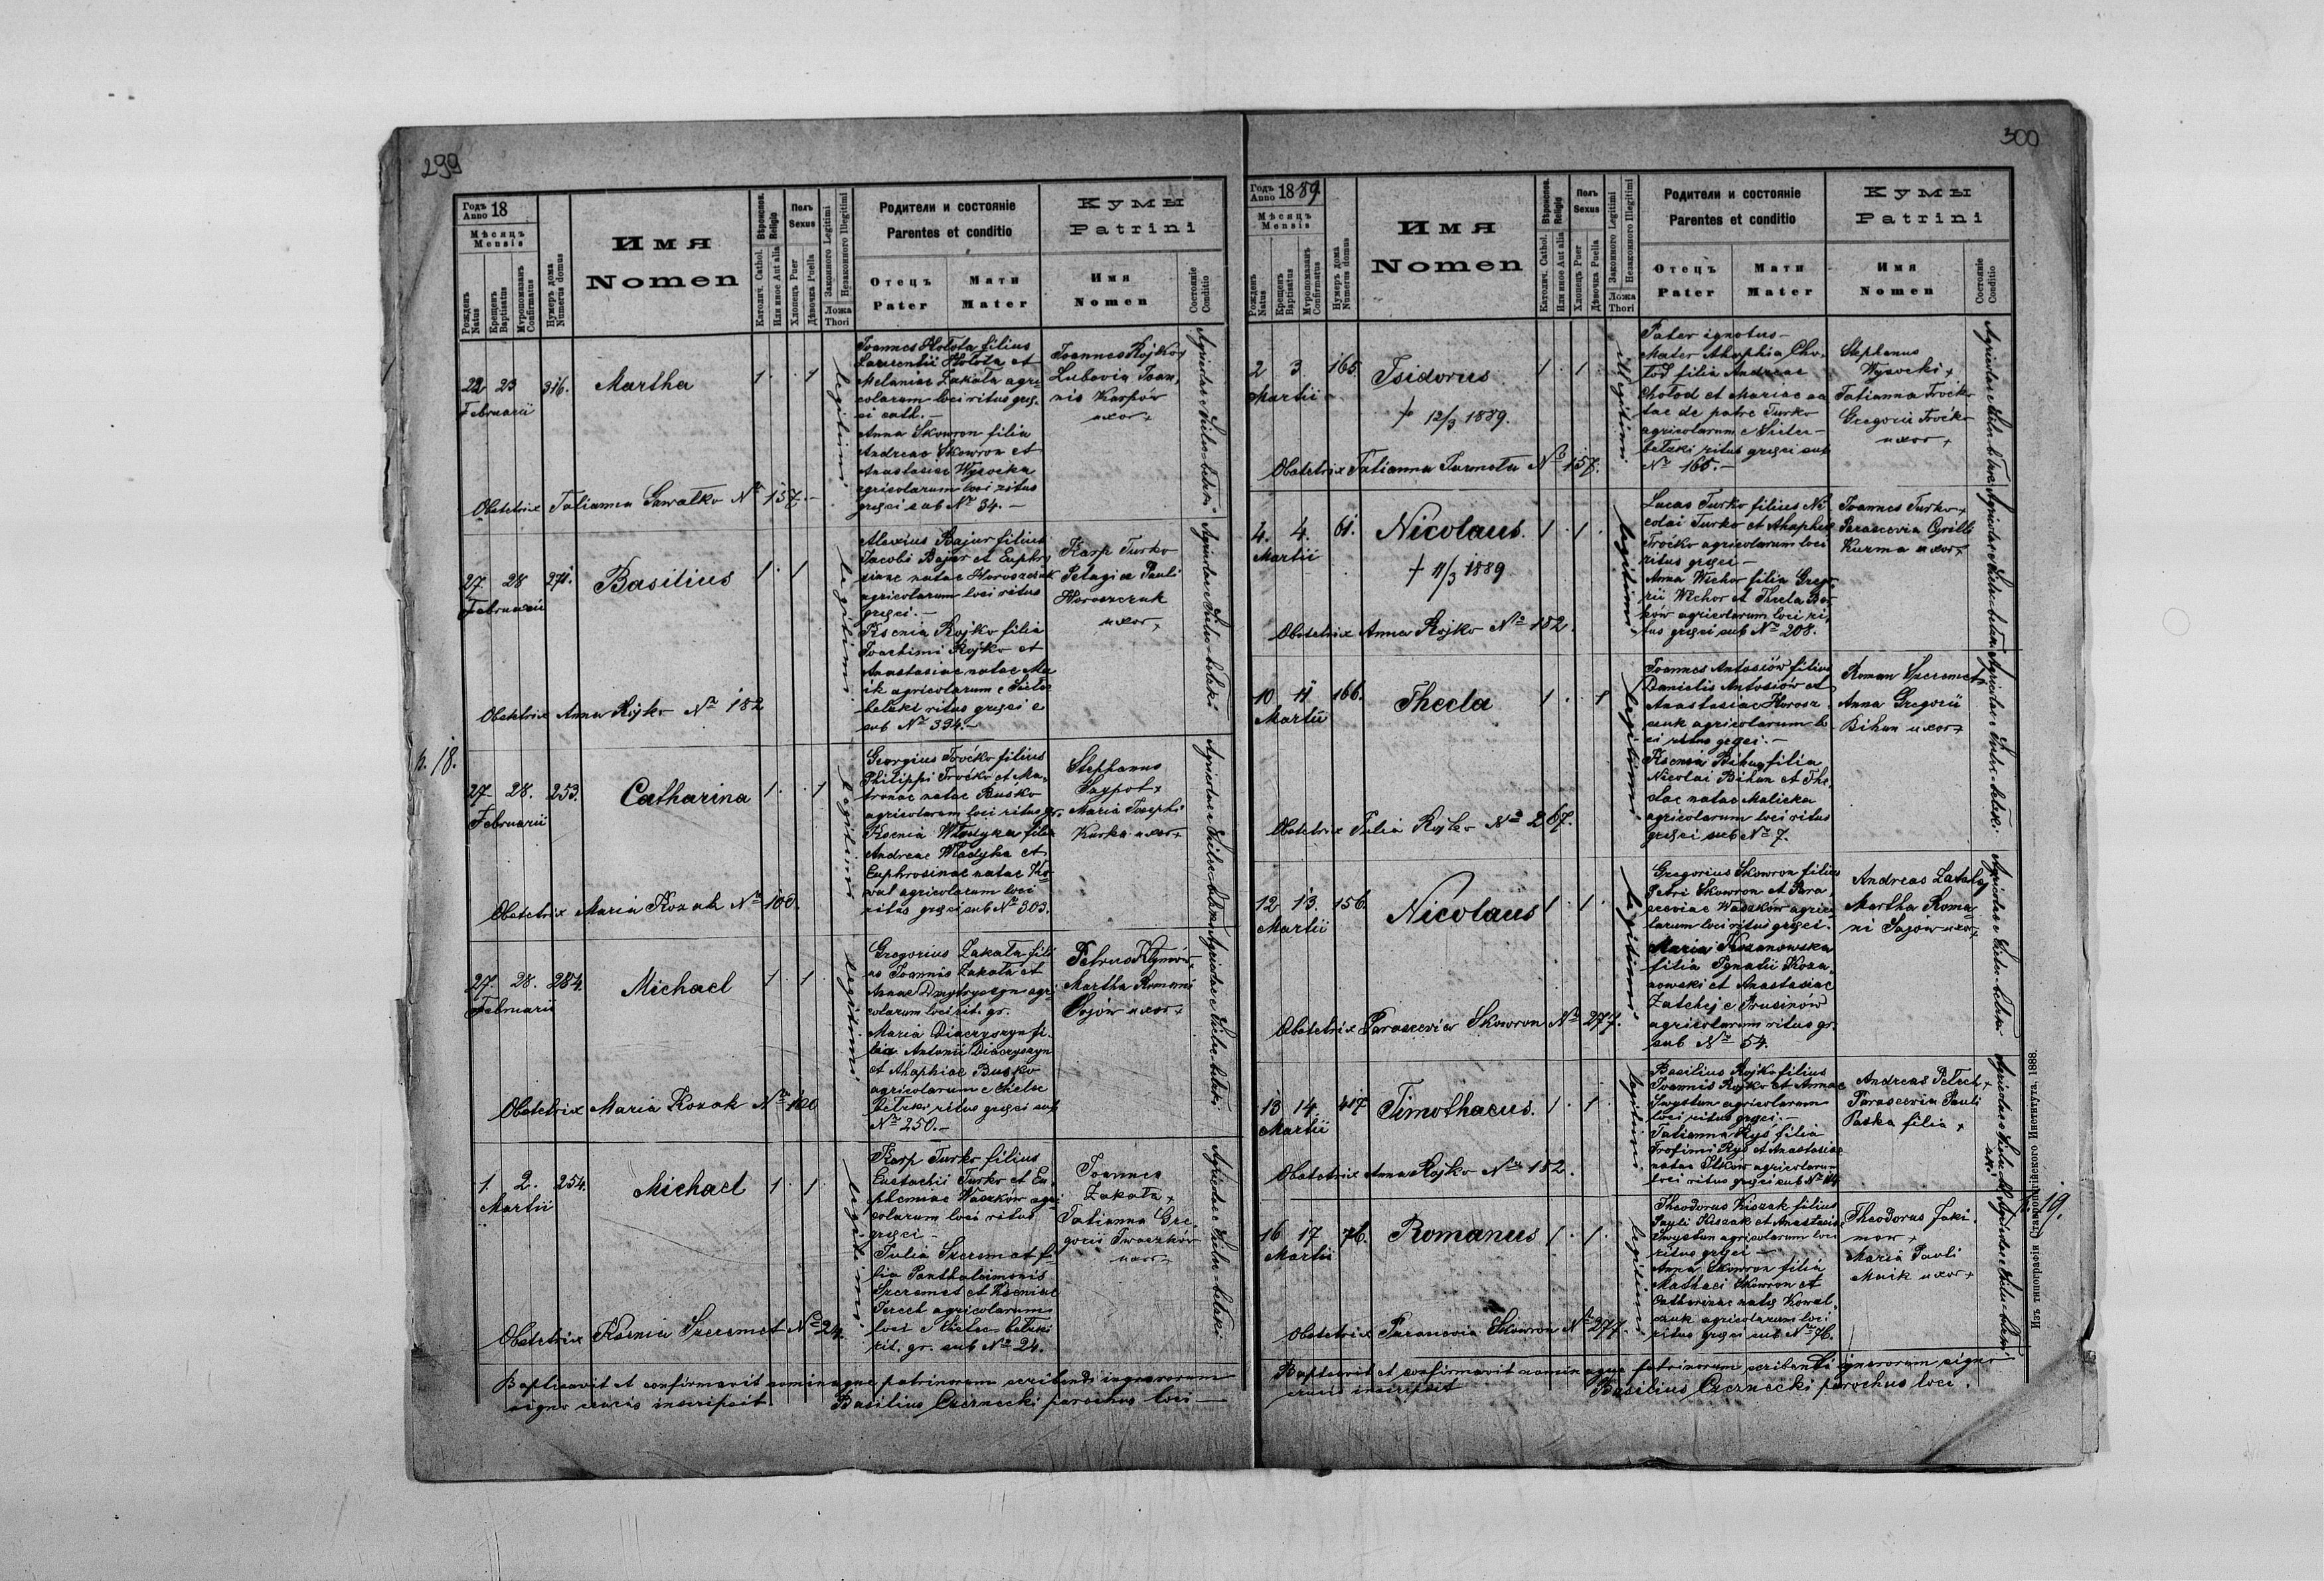 299
Годъ Anno 18
Мѣсяцъ Mensis
Рожденъ Natus
Крещенъ Baptisatus
Мѵропомазанъ Confirmatus
Нумеръ дома Numerus domus
Имя
Nomen
Вѣроиспов. Religio
Католич. Cathol.
Или иное Aut alia
Полъ Sexus
Хлопецъ Puer
Дѣвочка Puella
Законного Legitimi
Незаконного Illegitimi
Ложа Thori
Родители и состояніе
Parentes et conditio
Отецъ Pater
Мати Mater
Кумы
Patrini
Имя Nomen
Состояніе Conditio
22 23 316. Martha 1 1
Februarii
legitimi
Joannes Hołota filius
Laurentii Hołota et
Melaniae Zakała agri
colarum loci ritus græ
ci cath.
Anna Skowron filia
Andreae Skowron et
Anastasiae Wysocka
agricolarum loci ritus
græci sub Nr 34.
Joannes Rojko +
Lubovia Joan
nis Karpów
uxor +
Obstetrix Tatianna Sawałko Nr 157.
27 28 271. Basilius 1 1
Februarii
legitimi
Alexius Bajur filius
Jacobi Bajur et Euphro
sinae natae Horoszczuk
agricolarum loci ritus
græci.
Ksenia Rojko filia
Joachimi Rojko et
Anastasiae natae Ma
ik agricolarum e Sielec
bełzki ritus græci e
sub Nr 394.
Karp Turko
Pelagia Pauli
Horoszczuk
uxor +
Obstetrix Anna Rojko Nr 182
p. 18.
27 28. 253. Catharina 1 1
Februarii
legitimi
Georgius Troćko filius
Philippi Troćko et Ma
tronae natae Buśko
agricolarum loci ritus gr.
Ksenia Władyka filia
Andreae Władyka et
Euphrosinae natae Ko
wal agricolarum loci
ritus græci sub Nr 303.
Stephanus
Saypot +
Maria Josephi
Kurka uxor +
Obstetrix Maria Kozak Nr 100.
27. 28. 284. Michael 1 1
Februarii
legitimi
Gregorius Zakała fili
us Joannis Zakała et
Annae Dmytryszyn agri
colarum loci rit. gr.
Maria Diaczyszyn fi
lia Antonii Diaczyszyn
et Ahaphiae Busko
agricolarum e Sielec
bełzki ritus græci sub
Nr 250.
Petrus Klymów +
Martha Romani
Sojów uxor +
Obstetrix Maria Kozak Nr 100
1. 2. 254. Michael 1 1
Martii
legitimi
Karp Turko filius
Eustachii Turko et Eu
phemiae Waszków agri
colarum loci ritus
græci
Julia Szeremet fi
lia Panthaleimonis
Szeremet et Kseniae
Terech agricolarum
loci e Sielec bełzki
rit. gr. sub Nr 24.
Joannes
Zakała +
Tatianna Gre
gorii Iwaszków
uxor +
Obstetrix Ksenia Szeremet Nr 24.
Baptisavit et confirmavit nominaque patrinorum scribendi ignarorum
signo crucis inscripsit Basilius Czernecki parochus loci
300
Годъ Anno 1889
Мѣсяцъ Mensis
Рожденъ Natus
Крещенъ Baptisatus
Мѵропомазанъ Confirmatus
Нумеръ дома Numerus domus
Имя
Nomen
Вѣроиспов. Religio
Католич. Cathol.
Или иное Aut alia
Полъ Sexus
Хлопецъ Puer
Дѣвочка Puella
Законного Legitimi
Незаконного Illegitimi
Ложа Thori
Родители и состояніе
Parentes et conditio
Отецъ Pater
Мати Mater
Кумы
Patrini
Имя Nomen
Состояніе Conditio
2 3 165. Isidorus 1 1
Martii
+ 12/3 1889.
illegitimi
Pater ignotus
Mater Ahaphia Cho
łod filia Andreae
Chołod et Mariae na
tae de patre Turko
agricolarum e Sielec
bełzki ritus græci sub
Nr 165.
Stephanus
Wysocki +
Tatianna Troćko
Gregorii Troćko
uxor +
Obstetrix Tatianna Surmota Nr 157.
4. 4. 61. Nicolaus. 1 1
Martii
+ 11/3 1889
legitimi
Lucas Turko filius Ni
colai Turko et Ahaphiae
Troćko agricolarum loci
ritus græci
Anna Wichor filia Grego
rii Wichor et Thecla Bor
ków agricolarum loci ri
tus græci sub Nr 208.
Joannes Turko +
Parascevia Cyrilli
Kuzma uxor +
Obstetrix Anna Rojko Nr 182.
10 11 166. Thecla 1 1
Martii
legitimi
Joannes Antosiów filius
Danielis Antosiów et
Anastasiae Horosz
czuk agricolarum lo
ci ritus græci.
Ksenia Bihun filia
Nicolai Bihun et The
clae natae Malicka
agricolarum loci ritus
græci sub Nr 7.
Roman Szeremet
Anna Gregorii
Bihun uxor +
Obstetrix Julia Rojko Nr 267.
12 13 156. Nicolaus 1 1
Martii
legitimi
Gregorius Skowron filius
Petri Skowron et Para
sceviae Waszków agrico
larum loci ritus græci.
Maria Kozanowska
filia Ignatii Koza
nowski et Anastasiae
Zatchej e Prusinów
agricolarum ritus gr.
sub Nr 54.
Andreas Zatchej
Martha Roma
ni Sojów uxor +
Obstetrix Parascevia Skowron Nr 277.
13 14. 417 Timothaeus. 1 1
Martii
legitimi
Basilius Rojko filius
Joannis Rojko et Annae
Swystun agricolarum
loci ritus græci.
Tatianna Ryś filia
Trofimi Ryś et Anastasiae
natae Ilków agricolarum
loci ritus græci sub Nr 114
Andreas Pełech +
Parascevia Pauli
Paska filia +
Obstetrix Anna Rojko Nr 182.
16 17 76. Romanus 1 1
Martii
19.
legitimi
Theodorus Kiszak filius
Pauli Kiszak et Anastasiae
Swystun agricolarum loci
ritus græci
Anna Skowron filia
Mathaei Skowron et
Catharinae natæ Kowal
czuk agricolarum loci
ritus græci sub Nr 76.
Theodorus Jaki
mow +
Maria Pauli
Maik uxor +
Obstetrix Parascevia Skowron Nr 277.
Baptisavit et confirmavit nominaque patrinorum scribendi ignarorum signo
crucis inscripsit Basilius Czernecki parochus loci.
Изъ типографіи Ставропигійского Института, 1888.